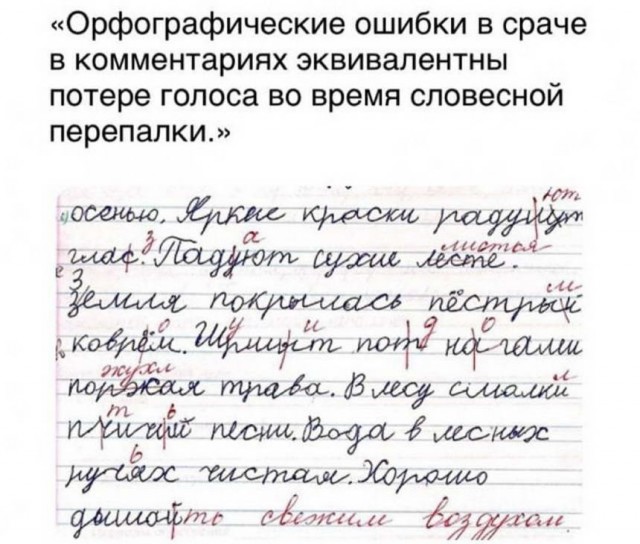 «Орфографические ошибки в сраче
в комментариях эквивалентны
потере голоса во время словесной
перепалки.»
ют
осенью. Яркие краски
з а листья
глас. Падуют сухие лесте.
З м
земля покрылась пёстрый
о у и д о
коврём. пот нагами
жухл
трава. В лесу смалкй
т ь
песни. Вода в лесных
ь
ручях чистая. Хорошо
свежим воздухом